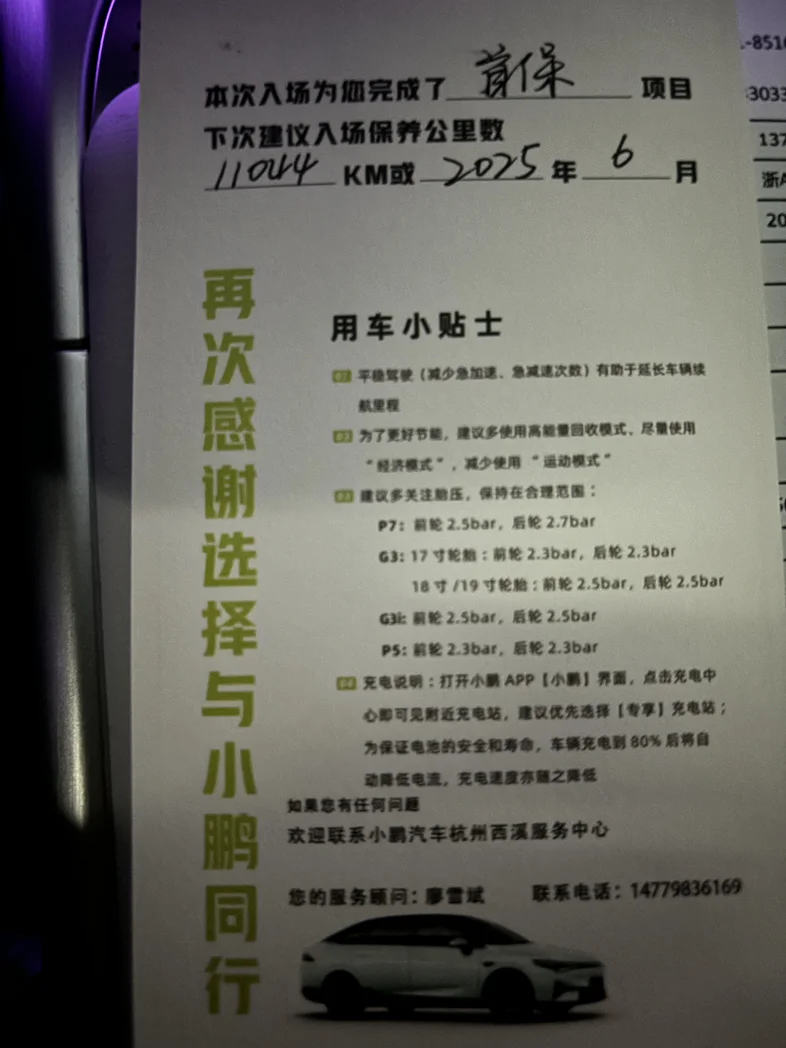 本次入场为您完成了 首保 项目
下次建议入场保养公里数
11044 KM或 2025 年 6 月
再次感谢选择与小鹏同行
用车小贴士
01 平稳驾驶（减少急加速、急减速次数）有助于延长车辆续
航里程
02 为了更好节能，建议多使用高能量回收模式，尽量使用
“经济模式”，减少使用“运动模式”
03 建议多关注胎压，保持在合理范围：
P7：前轮 2.5bar，后轮 2.7bar
G3：17 寸轮胎：前轮 2.3bar，后轮 2.3bar
18 寸 /19 寸轮胎：前轮 2.5bar，后轮 2.5bar
G3i：前轮 2.5bar，后轮 2.5bar
P5：前轮 2.3bar，后轮 2.3bar
04 充电说明：打开小鹏 APP【小鹏】界面，点击充电中
心即可见附近充电站，建议优先选择【专享】充电站；
为保证电池的安全和寿命，车辆充电到 80% 后将自
动降低电流，充电速度亦随之降低
如果您有任何问题
欢迎联系小鹏汽车杭州西溪服务中心
您的服务顾问：廖雪斌 联系电话：14779836169
-8516
3033
137
浙A
20